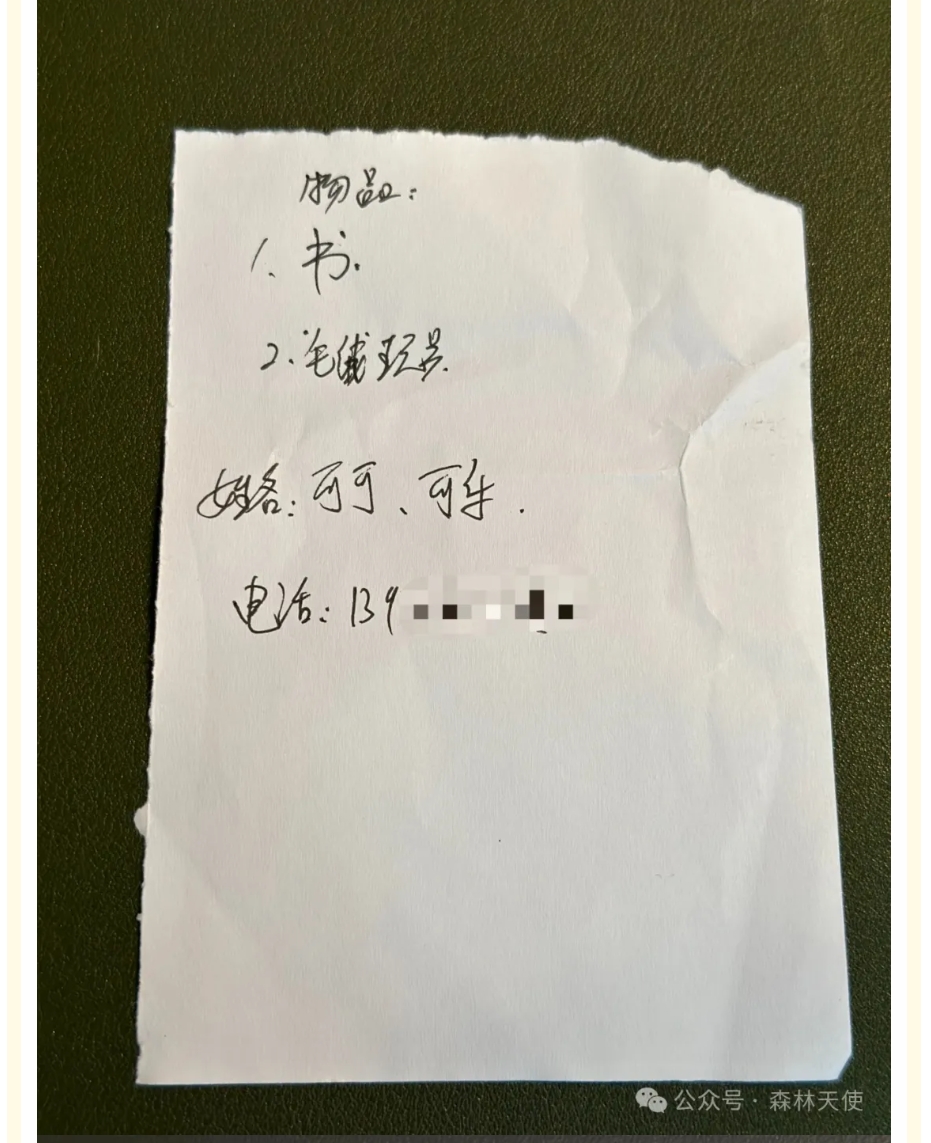 物品：
1、书.
2.毛绒玩具.
姓名：可可、可乐.
电话：139
公众号·森林天使